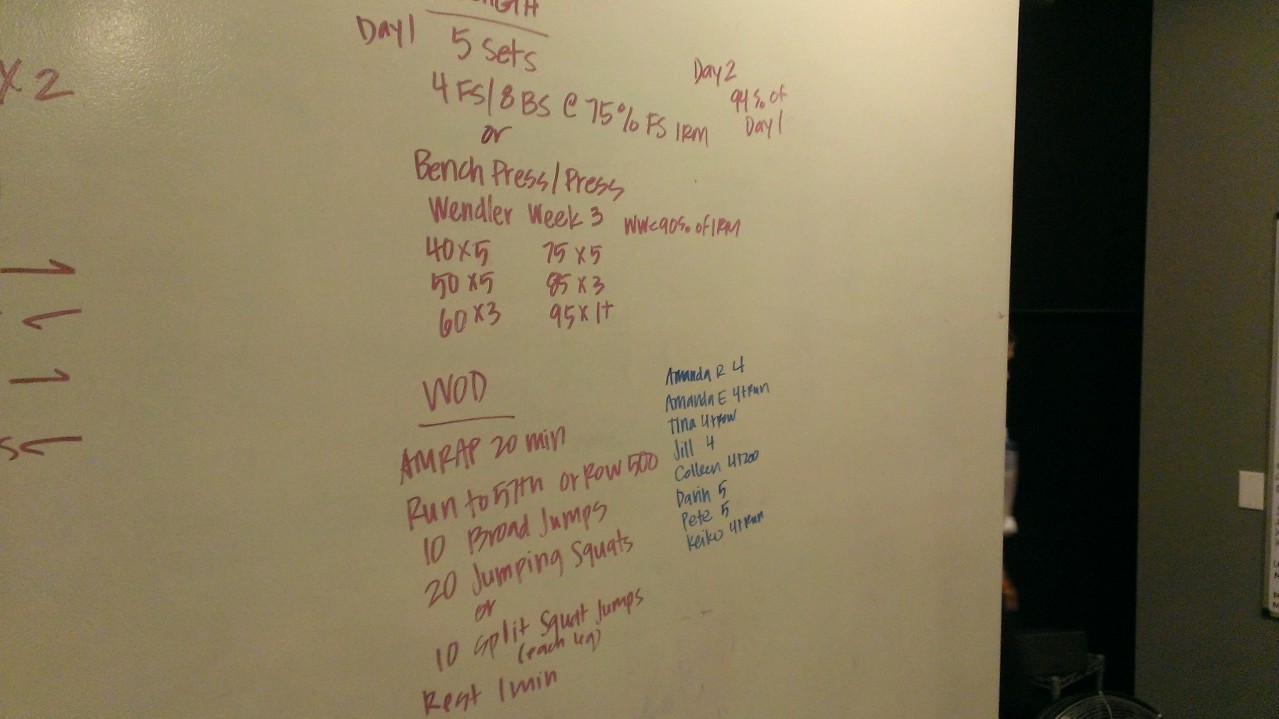 X 2
Day 1
5 Sets
4 FS/8 BS @ 75% FS 1RM
or
Day 2
94% of
Day 1
Bench Press/Press
Wendler Week 3 WW<90% of 1RM
40 x 5 75 x 5
50 x 5 85 x 3
60 x 3 95 x 1+
WOD
AMRAP 20 min
Run to 57th or Row 500
10 Broad Jumps
20 Jumping Squats
or
10 Split Squat Jumps
(each leg)
Rest 1 min
Amanda R 4
Amanda E 4+Run
Tina 4+Row
Jill 4
Colleen 4+200
Darin 5
Pete 5
Keiko 4+Run